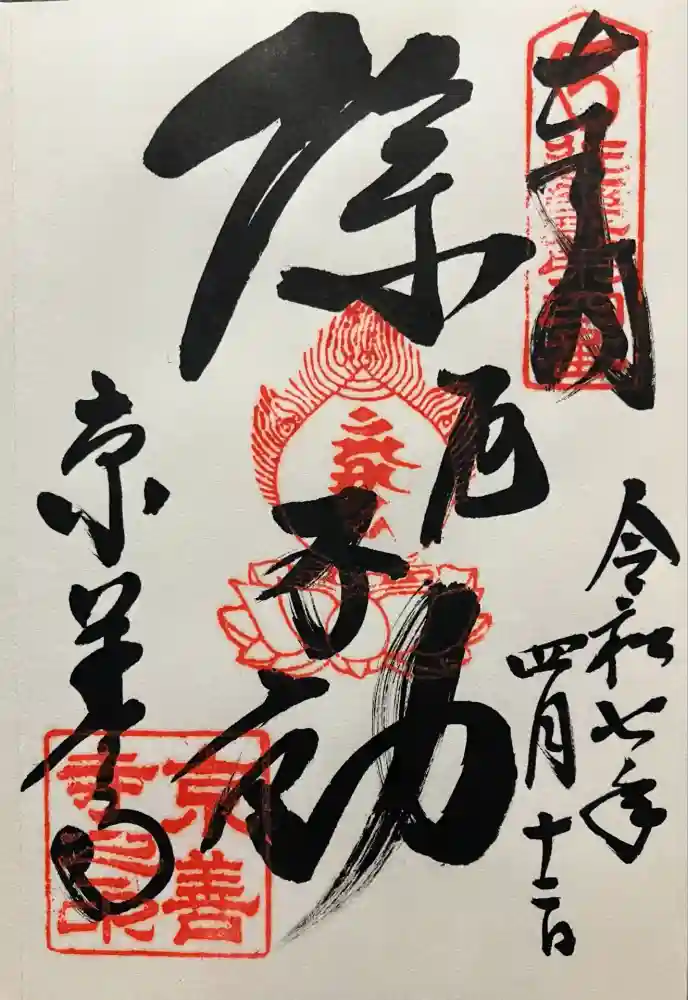 奉拝
除厄不動
令和七年
四月十二日
京善寺
京善
寺之印